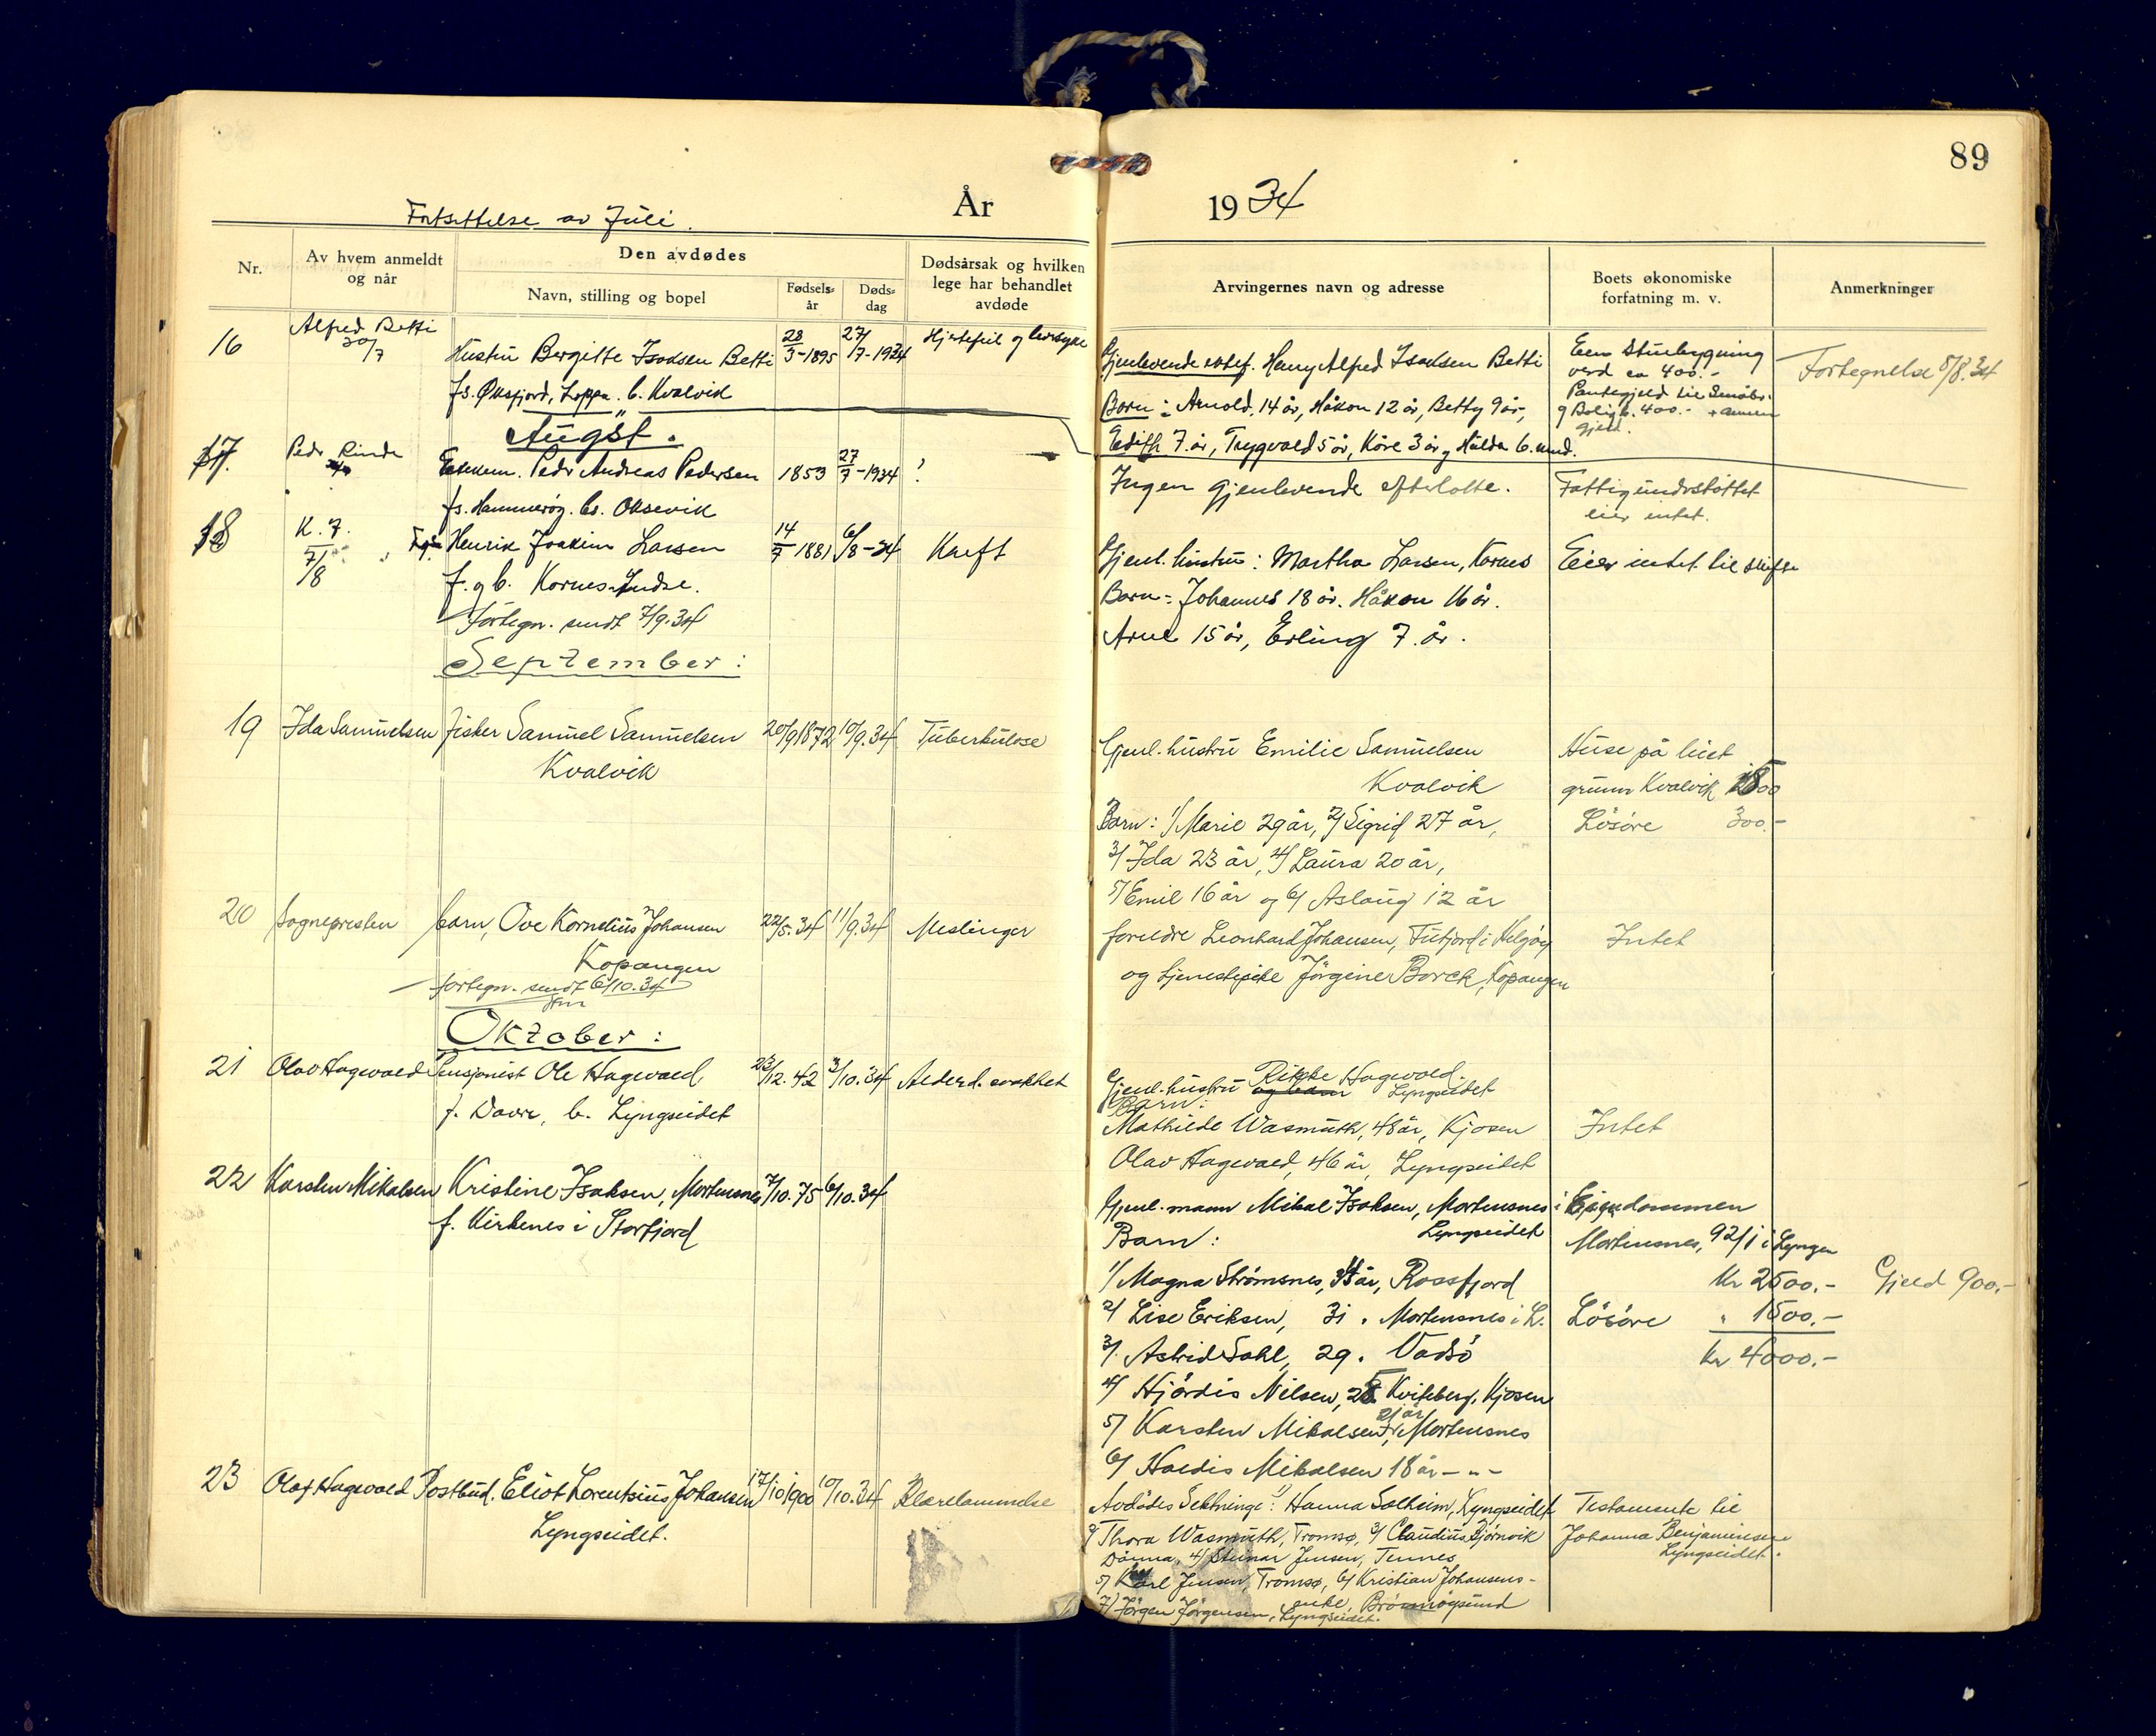 89
År 1934
Fortsettelse av Juli.
Nr.
Av hvem anmeldt og når
Den avdødes
Navn, stilling og bopel
Fødsels-år
Døds-dag
Dødsårsak og hvilken lege har behandlet avdøde
Arvingernes navn og adresse
Boets økonomiske forfatning m. v.
Anmerkninger
16
Alfred Betti
30/7
Hustru Bergitte Isaksen Betti
fs. Øksfjord, Loppa. b. Kvalvik
28/3-1895
27/7-1934
Hjertefeil og
Gjenlevende ektef. Henry Alfred Isaksen Betti
Born: Arnold 14 år, Håkon 12 år, Betty 9 år,
Edith 7 år, Trygvald 5 år, Kåre 3 år og Hulda 6. mnd.
Een Stuebygning
verd ca 400.-
Pantegjeld til Småbr.
og Bolig b. 400.- + annen
gjeld.
Fortegnelse 8/8.34
Augst.
17.
Peder Rinde
Enkem. Peder Andreas Pedersen
fs. Hammerøy. bs. Oksevik
1853
27/7-1934
?
Ingen gjenlevende efterlatte.
Fattigunderstøttet
eier intet.
18
K. F.
7/8
Henrik Joakim Larsen
f. og b. Kornes-Indse.
14/7 1881
6/8-34
Kreft
Gjenl. hustru: Martha Larsen, Kornes
Barn: Johannes 18 år. Håkon 16 år.
Arne 15 år, Erling 7. år.
Eier intet til skifte
fortegn. sendt 7/9.34
September:
19
Ida Samuelsen
Fisker Samuel Samuelsen
Kvalvik
20/9 1872
10/9.34
Tuberkulose
Gjenl. hustru Emilie Samuelsen
Kvalvik
Barn: 1/ Marie 29 år, 2/ Sigrid 27 år,
3/ Ida 23 år, 4/ Laura 20 år,
5/ Emil 16 år og 6/ Aslaug 12 år
Huse på leiet
grunn Kvalvik
Løsøre 300.-
20
Sognepresten
barn, Ove Kornelius Johansen
Kopangen
22/5.34
11/9.34
Meslinger
foreldre Leonhard Johansen, Futfjord i Helgøy
og tjenestepike Jørgine Borck, Kopangen
Intet
fortegn. sendt 6/10.34
Oktober:
21
Olav Hagevold
Pensjonist Ole Hagevold
f. Dovre, b. Lyngseidet
23/12.42
3/10.34
Alderd. svakhet
Gjenl. hustru Rikke Hagevold.
og barn Lyngseidet
Barn:
Mathilde Wasmuth, 48 år, Kjosen
Olav Hagevold, 46 år, Lyngseidet
Intet
22
Karsten Mikalsen
Kristine Isaksen, Mortensnes
f. Kirkenes i Storfjord
7/10.75
6/10.34
Gjenl. mann Mikal Isaksen, Mortensnes i
Lyngseidet
Barn:
1/ Magna Strømsnes, år, Rossfjord
2/ Lise Eriksen, 31 " Mortensnes i L.
3/ Astrid Dahl, 29. Vadsø
4/ Hjørdis Nilsen, Kviteberg, Kjosen
21 år
5/ Karsten Mikalsen, Mortensnes
6/ Haldis Mikalsen 18 år - " -
Eiendommen
Mortensnes, 92/1 i Lyngen
Kr 2500.-
Løsøre " 1500.-
Kr 4000.-
Gjeld 900.-
23
Olaf Hagevold
Postbud. Eliot Lorentsius Johansen
Lyngseidet.
17/10 1900
10/10.34
Blærelammelse
Avdødes Slektninge: 1/ Hanna Solheim, Lyngseidet
2/ Thora Wasmuth, Tromsø, 3/ Claudius Bjørnvik
Dønna, 4/ Steinar Jensen, Tennes
5/ Karl Jensen, Tromsø, 6/ Kristian Johansens-
enke, Brønnøysund
7/ Jørgen Jørgensen, Lyngseidet.
Testamente til
Johanna Benjaminsen
Lyngseidet.